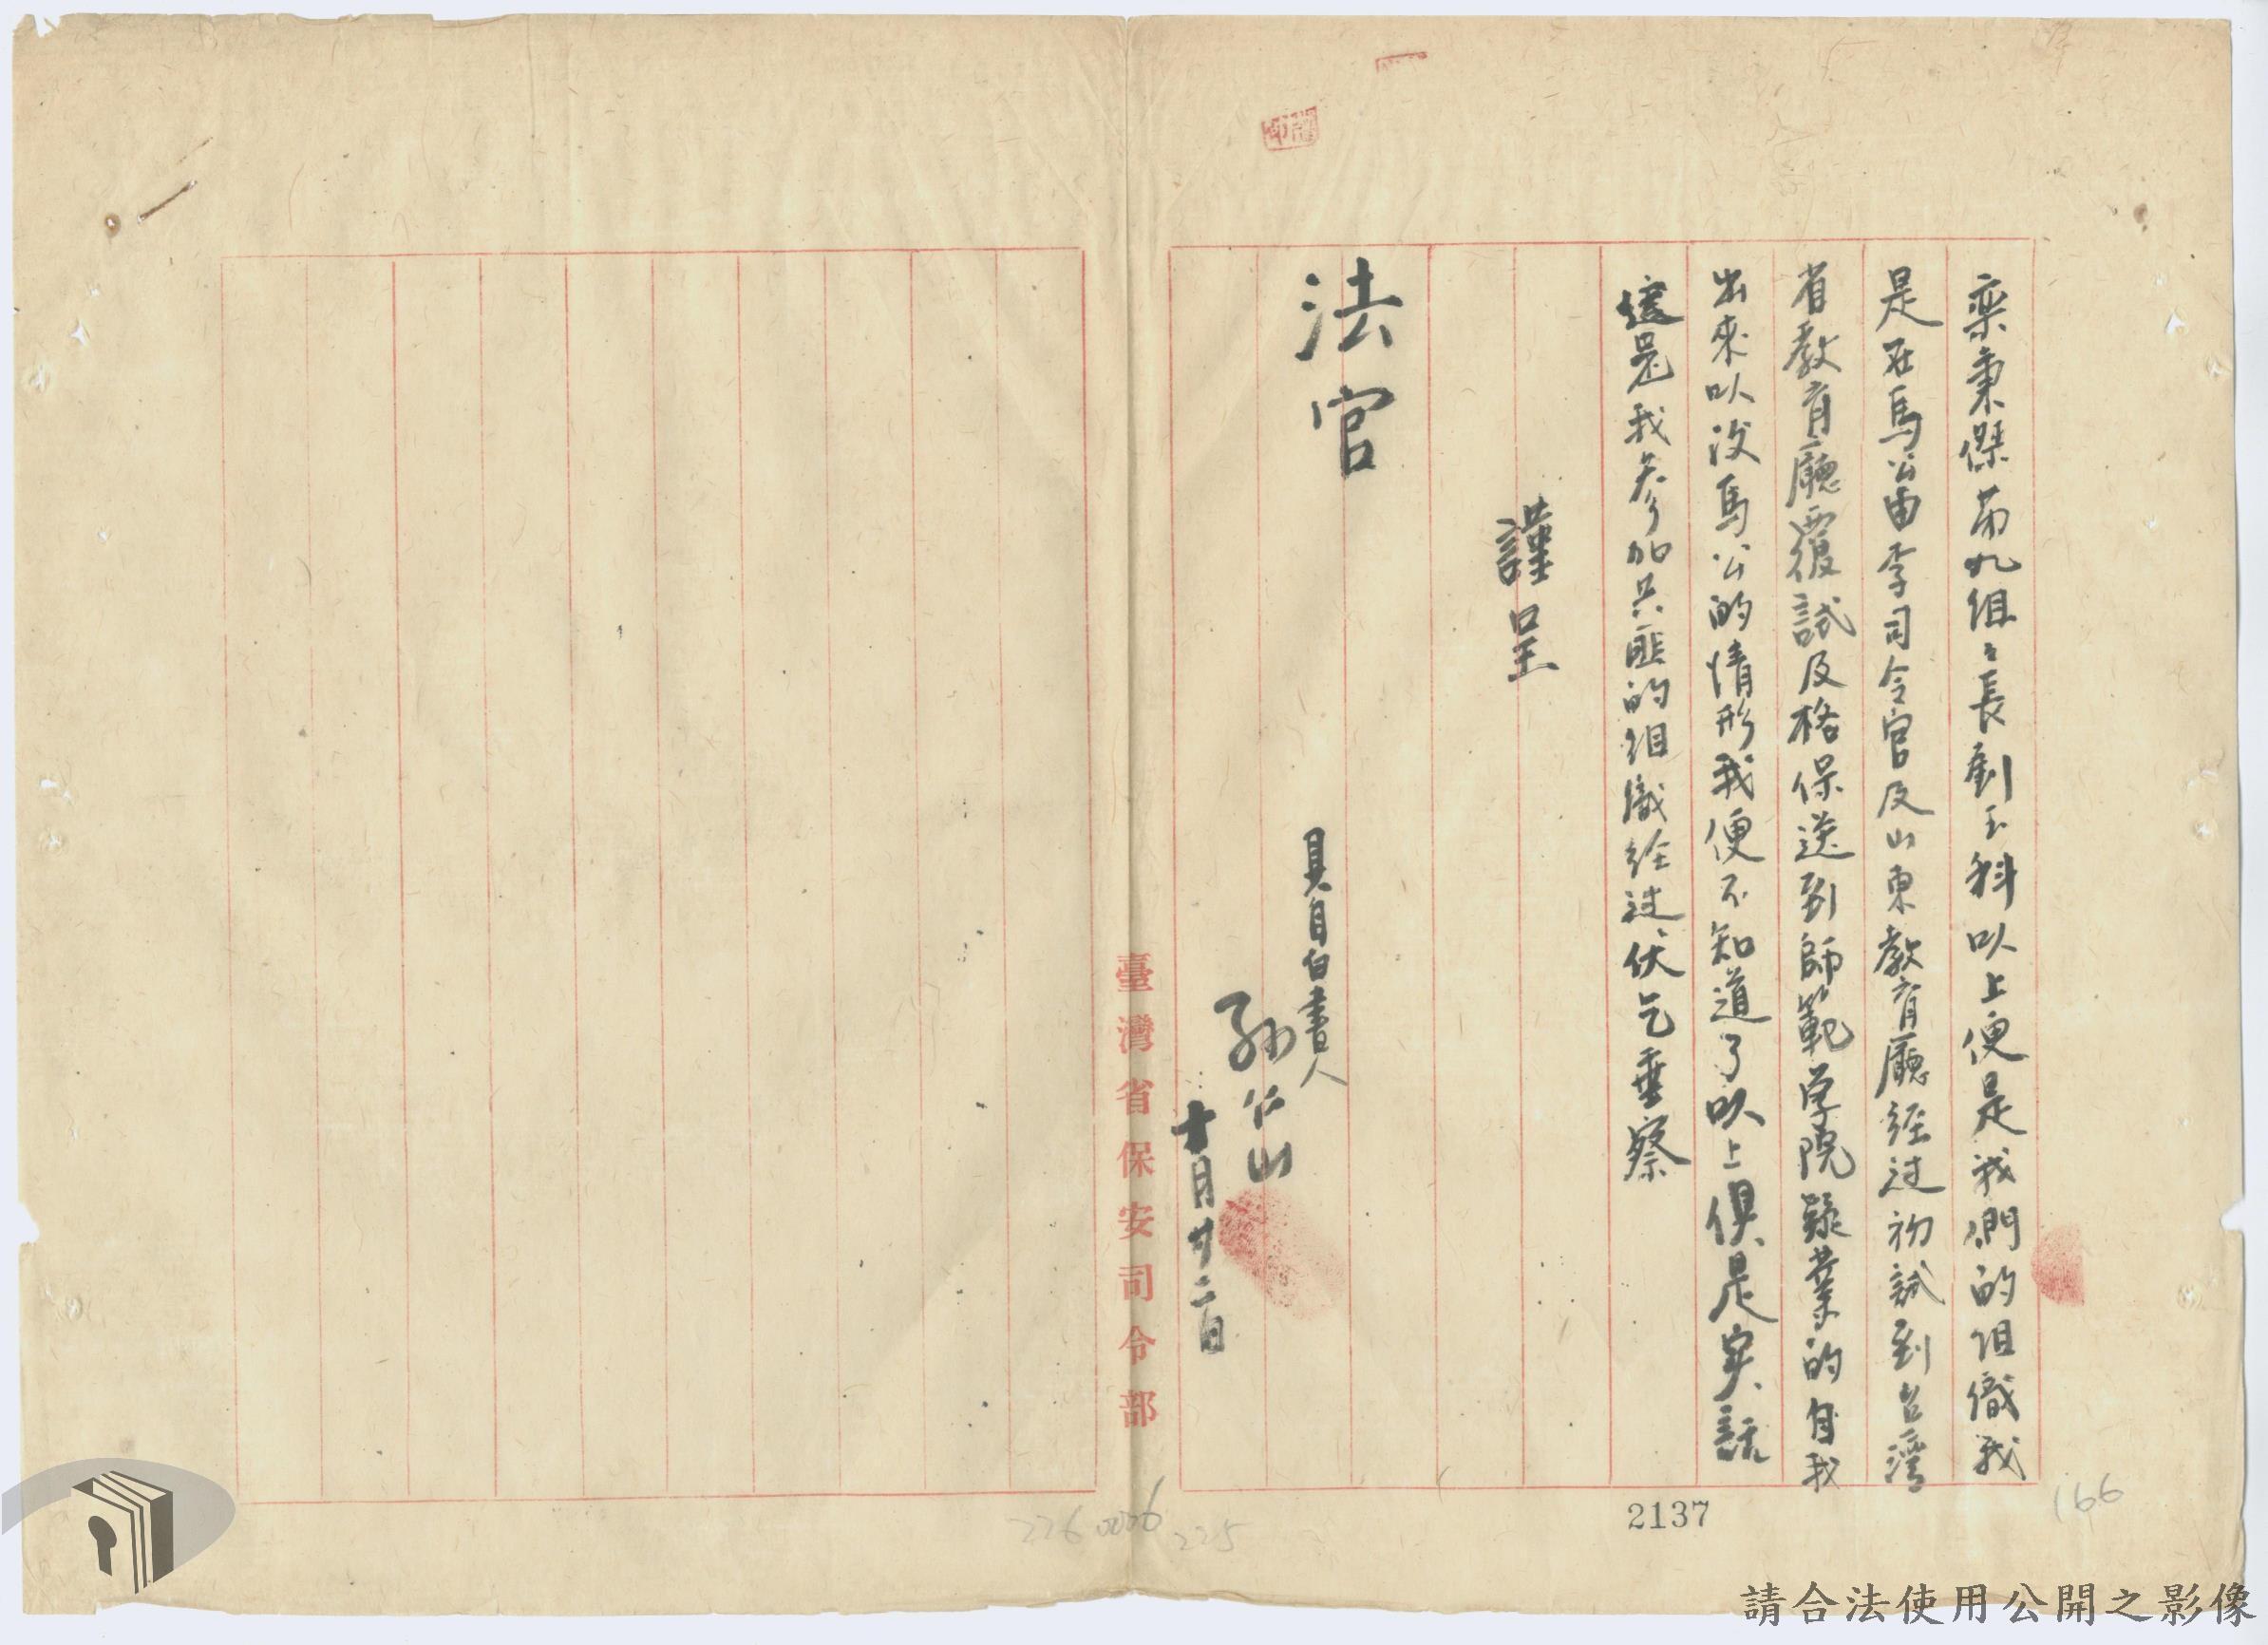 欒秉傑第九組々長劉玉科以上便是我們的組織我
是在馬公由李司令官及山東教育廳經过初試到台灣
省教育廳覆試及格保送到師範学院肄業的自我
出來以後馬公的情形我便不知道了以上俱是实話
這是我参加共匪的組織经过伏乞垂察
謹呈
法官
具自白書人
孫仁山
十月廿二日
臺灣省保安司令部
2137
166
225
226
0006
請合法使用公開之影像